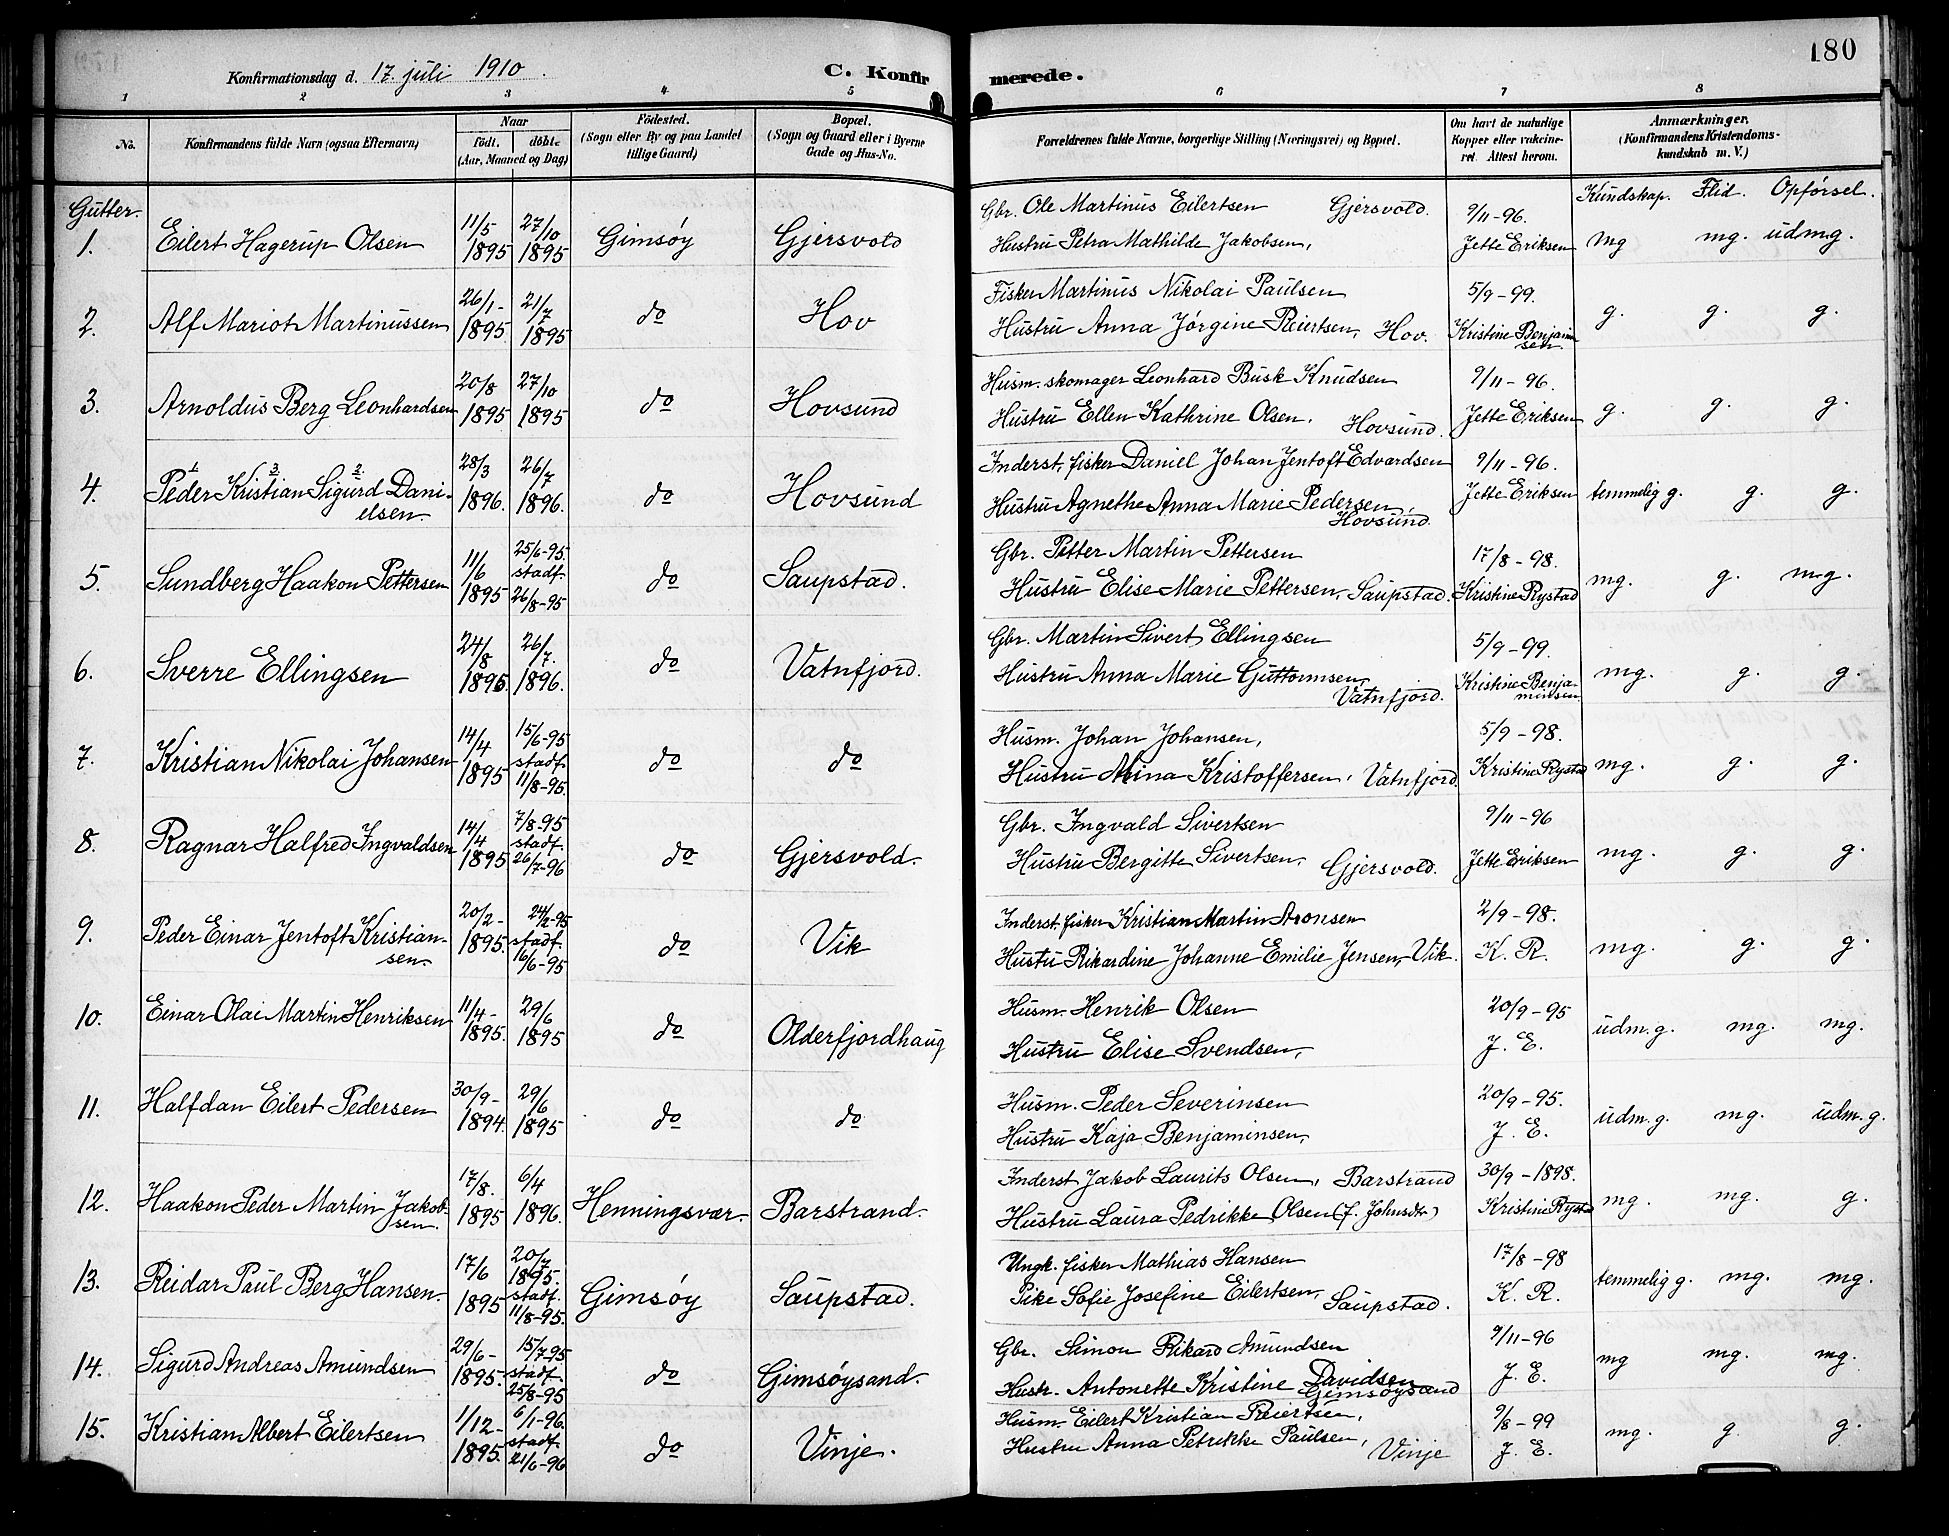 180
Konfirmationsdag d. 17. juli 1910. C. Konfirmerede.
1 2 3 4 5 6 7 8
No. Konfirmandens fulde Navn (ogsaa Efternavn) Naar født. døbt. (Aar, Maaned og Dag) Fødested. (Sogn eller By og paa Landet tillige Gaard) Bopæl. (Sogn og Gaard eller i Byerne Gade og Hus-No. Forældrenes fulde Navne, borgerlige Stilling (Næringsvei) og Bopæl. Om havt de naturlige Kopper eller vakcineret. Attest herom. Anmærkninger. (Konfirmandens Kristendomskundskab m. V.)
Gutter. Kundskap. Flid. Opførsel.
1. Eilert Hagerup Olsen 11/5 1895 27/10 1895 Gimsøy Gjersvold Gbr. Ole Martinus Eilertsen Gjersvold. 9/11-96. mg mg. udmg.
Hustru Petra Mathilde Jakobsen, Jette Eriksen
2. Alf Mariot Martinussen 26/1- 1895 21/7 1895 do Hov Fisker Martinus Nikolai Paulsen 5/9-99. g. g. g.
Hustru Anna Jørgine Reiertsen, Hov. Kristine Benjaminsen.
3. Arnoldus Berg Leonhardsen 20/8 1895 27/10 1895 do Hovsund Husm. skomager Leonhard Busk Knudsen 9/11-96. g. g. g.
Hustru Ellen Kathrine Olsen. Hovsund. Jette Eriksen
4. Peder Kristian Sigurd Danielsen. 1 3 2 28/3 1896. 26/7 1896. do Hovsund Inderst, fisker Daniel Johan Jentoft Edvardsen 9/11-96. temmelig g. g. g.
Hustru Agnethe Anna Marie Pedersen, Hovsund. Jette Eriksen
5. Sundberg Haakon Pettersen 11/6 1895 25/6-95. stadf. 26/8-95 do Saupstad. Gbr. Petter Martin Pettersen 17/8-98. mg. g. mg.
Hustru Elise Marie Pettersen, Saupstad. Kristine Rystad
6. Sverre Ellingsen 24/8 1895 26/7. 1896. do Vatnfjord. Gbr. Martin Sivert Ellingsen 5/9-99. mg. g. g.
Hustru Anna Marie Guttormsen, Vatnfjord. Kristine Benjaminsen
7. Kristian Nikolai Johansen 14/4 1895 15/6-95 stadf. 11/8-95. do do Husm. Johan Johansen, 5/9-98. mg. g. g.
Hustru Mina Kristoffersen, Vatnfjord. Kristine Rystad
8. Ragnar Halfred Ingvaldsen 14/4 1895 7/8-95 stadf. 26/7-96 do Gjersvold. Gbr. Ingvald Sivertsen 9/11-96 mg. g. g.
Hustru Bergitte Sivertsen, Gjersvold. Jette Eriksen
9. Peder Einar Jentoft Kristiansen. 20/2- 1895. 24/2-95 stadf. 16/6-95 do Vik Inderst. fisker Kristian Martin Aronsen 2/9-98. mg. g. g.
Hustu Rikardine Johanne Emilie Jensen, Vik. K. R.
10. Einar Olai Martin Henriksen 11/4- 1895. 29/6 1895 do Olderfjordhaug Husm. Henrik Olsen 20/9-95 udm.g. mg. mg.
Hustru Elise Svendsen, J. E.
11. Halfdan Eilert Pedersen 30/9- 1894. 29/6 1895 do do Husm. Peder Severinsen 20/9-95. udm.g. mg. udm.g.
Hustru Kaja Benjaminsen, J. E.
12. Haakon Peder Martin Jakobsen. 17/8. 1895 6/4 1896. Henningsvær. Barstrand. Inderst Jakob Laurits Olsen, Barstrand 30/9-1898. mg. mg. g.
Hustru Laura Pedrikke Olsen (f. Johnsdtr) Kristine Rystad
13. Reidar Paul Berg Hansen. 17/6 1895 20/7 1895. stadf. 11/8-95. Gimsøy Saupstad. Ungk. fisker Mathias Hansen 17/8-98 temmelig g. mg. mg.
Pike Sofie Josefine Eilertsen, Saupstad. K. R.
14. Sigurd Andreas Amundsen 29/6- 1895. 15/7-95 stadf. 25/8-95 do Gimsøysand. Gbr. Simon Rikard Amundsen 9/11-96 mg mg. mg.
Hustr. Antonette Kristine Davidsen Gimsøysand J. E.
15. Kristian Albert Eilertsen 1/12- 1895. 6/1-96. stadf. 21/6-96 do Vinje. Husm. Eilert Kristian Reiertsen, 9/8-99 mg. g. g.
Hustru Anna Petrikke Paulsen, Vinje J. E.